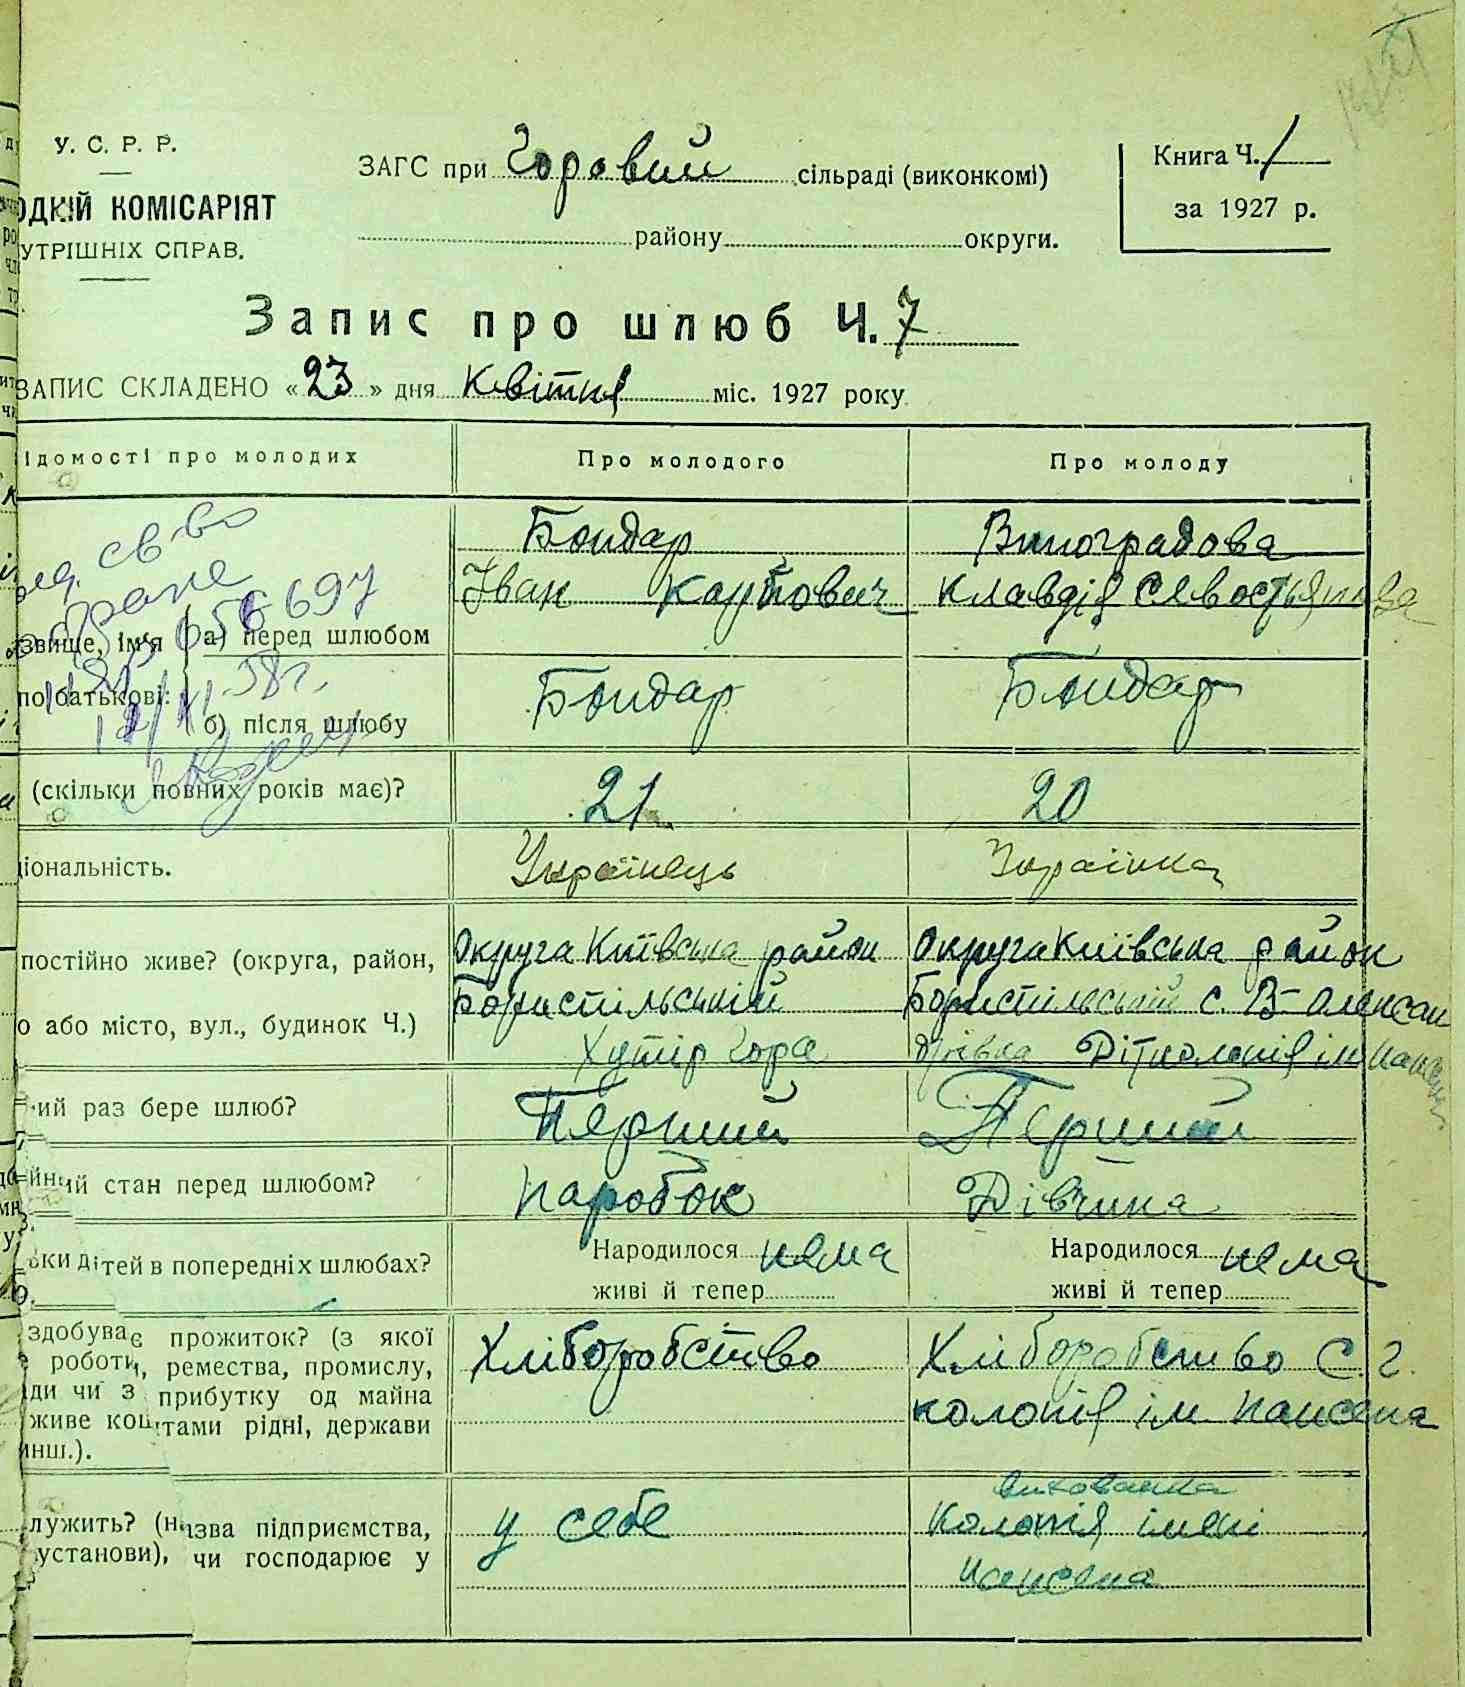 У. С. Р. Р.
ОДКІЙ КОМІСАРІЯТ
УТРІШНІХ СПРАВ.
ЗАГС при Горовий сільраді (виконкомі)
району округи.
Книга Ч. 1
за 1927 р.
Запис про шлюб Ч. 7
ЗАПИС СКЛАДЕНО « 23 » дня Квітня міс. 1927 року
ідомості про молодих
Про молодого
Про молоду
звище, ім'я
по батькові:
а) перед шлюбом
Бондар
Іван Карпович
Виноградова
Клавдія Севостьянова
б) після шлюбу
Бондар
Бондар
(скільки повних років має)?
21
20
ціональність.
Українець
Українка
постійно живе? (округа, район,
о або місто, вул., будинок Ч.)
Округа Київська район
Бориспільський
Хутір Гора
Округа Київська район
Бориспільський с. В-Олексан
дрівка Дітколонія ім Нансена
кий раз бере шлюб?
Перший
Перший
йний стан перед шлюбом?
Паробок
Дівчина
ьки дітей в попередніх шлюбах?
Народилося нема
живі й тепер
Народилося нема
живі й тепер
здобуває прожиток? (з якої
роботи, ремества, промислу,
ди чи з прибутку од майна
живе коштами рідні, держави
инш.).
Хліборобство
Хліборобство С. г.
колонія ім Нансена
лужить? (назва підприємства,
установи), чи господарює у
у себе
вихованка
Колонія імені
Нансена